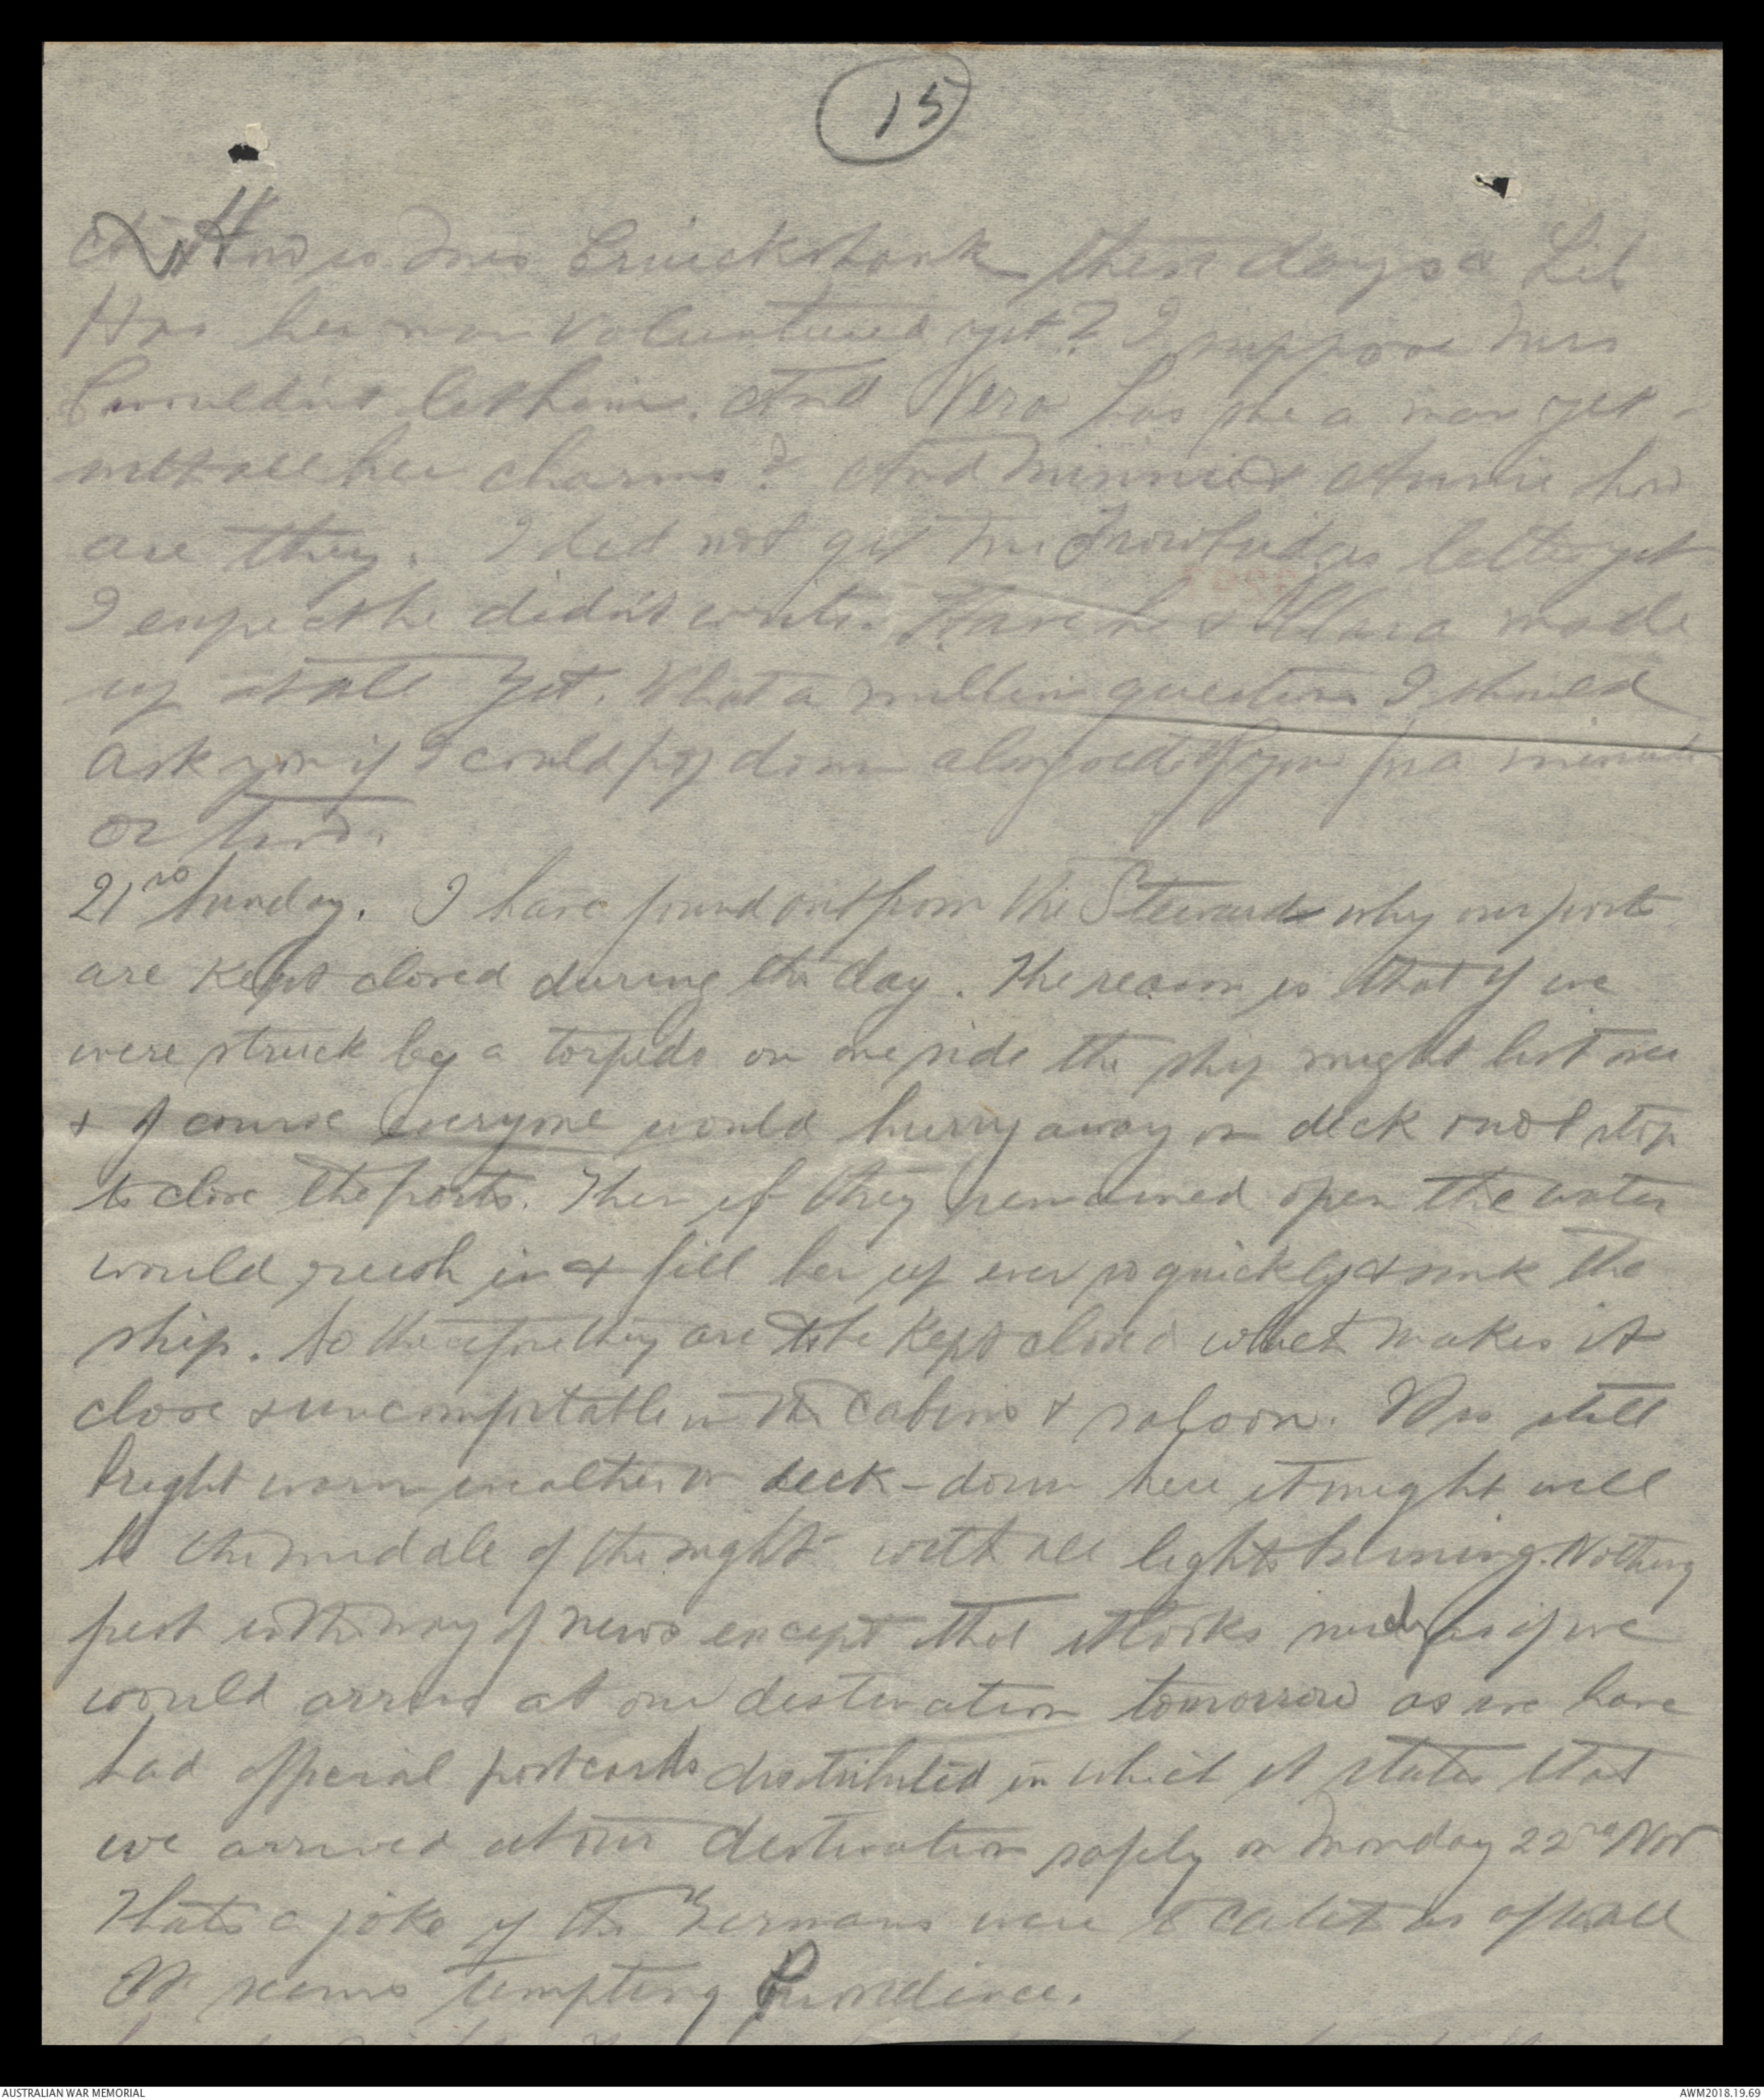 15
How is Mrs Cruickshank these days & Lil
Has her man volunteered yet? I suppose Mrs
C wouldn't let him. And Vera has she a man yet -
with all her charms? And Minnie & Annie how
are they. I did not get Mr Trowbridges letter yet
I expect he didn't write. Have he & Clara made
up at all yet. What a million questions I should
ask you if I could pop down alongside of you for a minute
or two.
21st Sunday. I have found out from the Stewards why our ports
are kept closed during the day. The reason is that if we
were struck by a torpedo on one side the ship might list over
& of course everyone would hurry away on deck & not stop
to close the ports. Then if they remained open the water
would rush in & fill her up ever so quickly & sink the
ship. So therefore they are to be kept closed which makes it
close & uncomfortable in the cabins & saloon. It is still
bright warm weather on deck - down here it might well
be the middle of the night with all lights burning. Nothing
fresh in the way of news except that it looks much as if we
would arrive at our destination tomorrow as we have
had official postcards distributed in which it states that
we arrived at our destination safely on Monday 22nd Nov
Thats a joke if the Germans were to catch us after all
It seems tempting Providence.
AUSTRALIAN WAR MEMORIAL
AWM2018.19.69